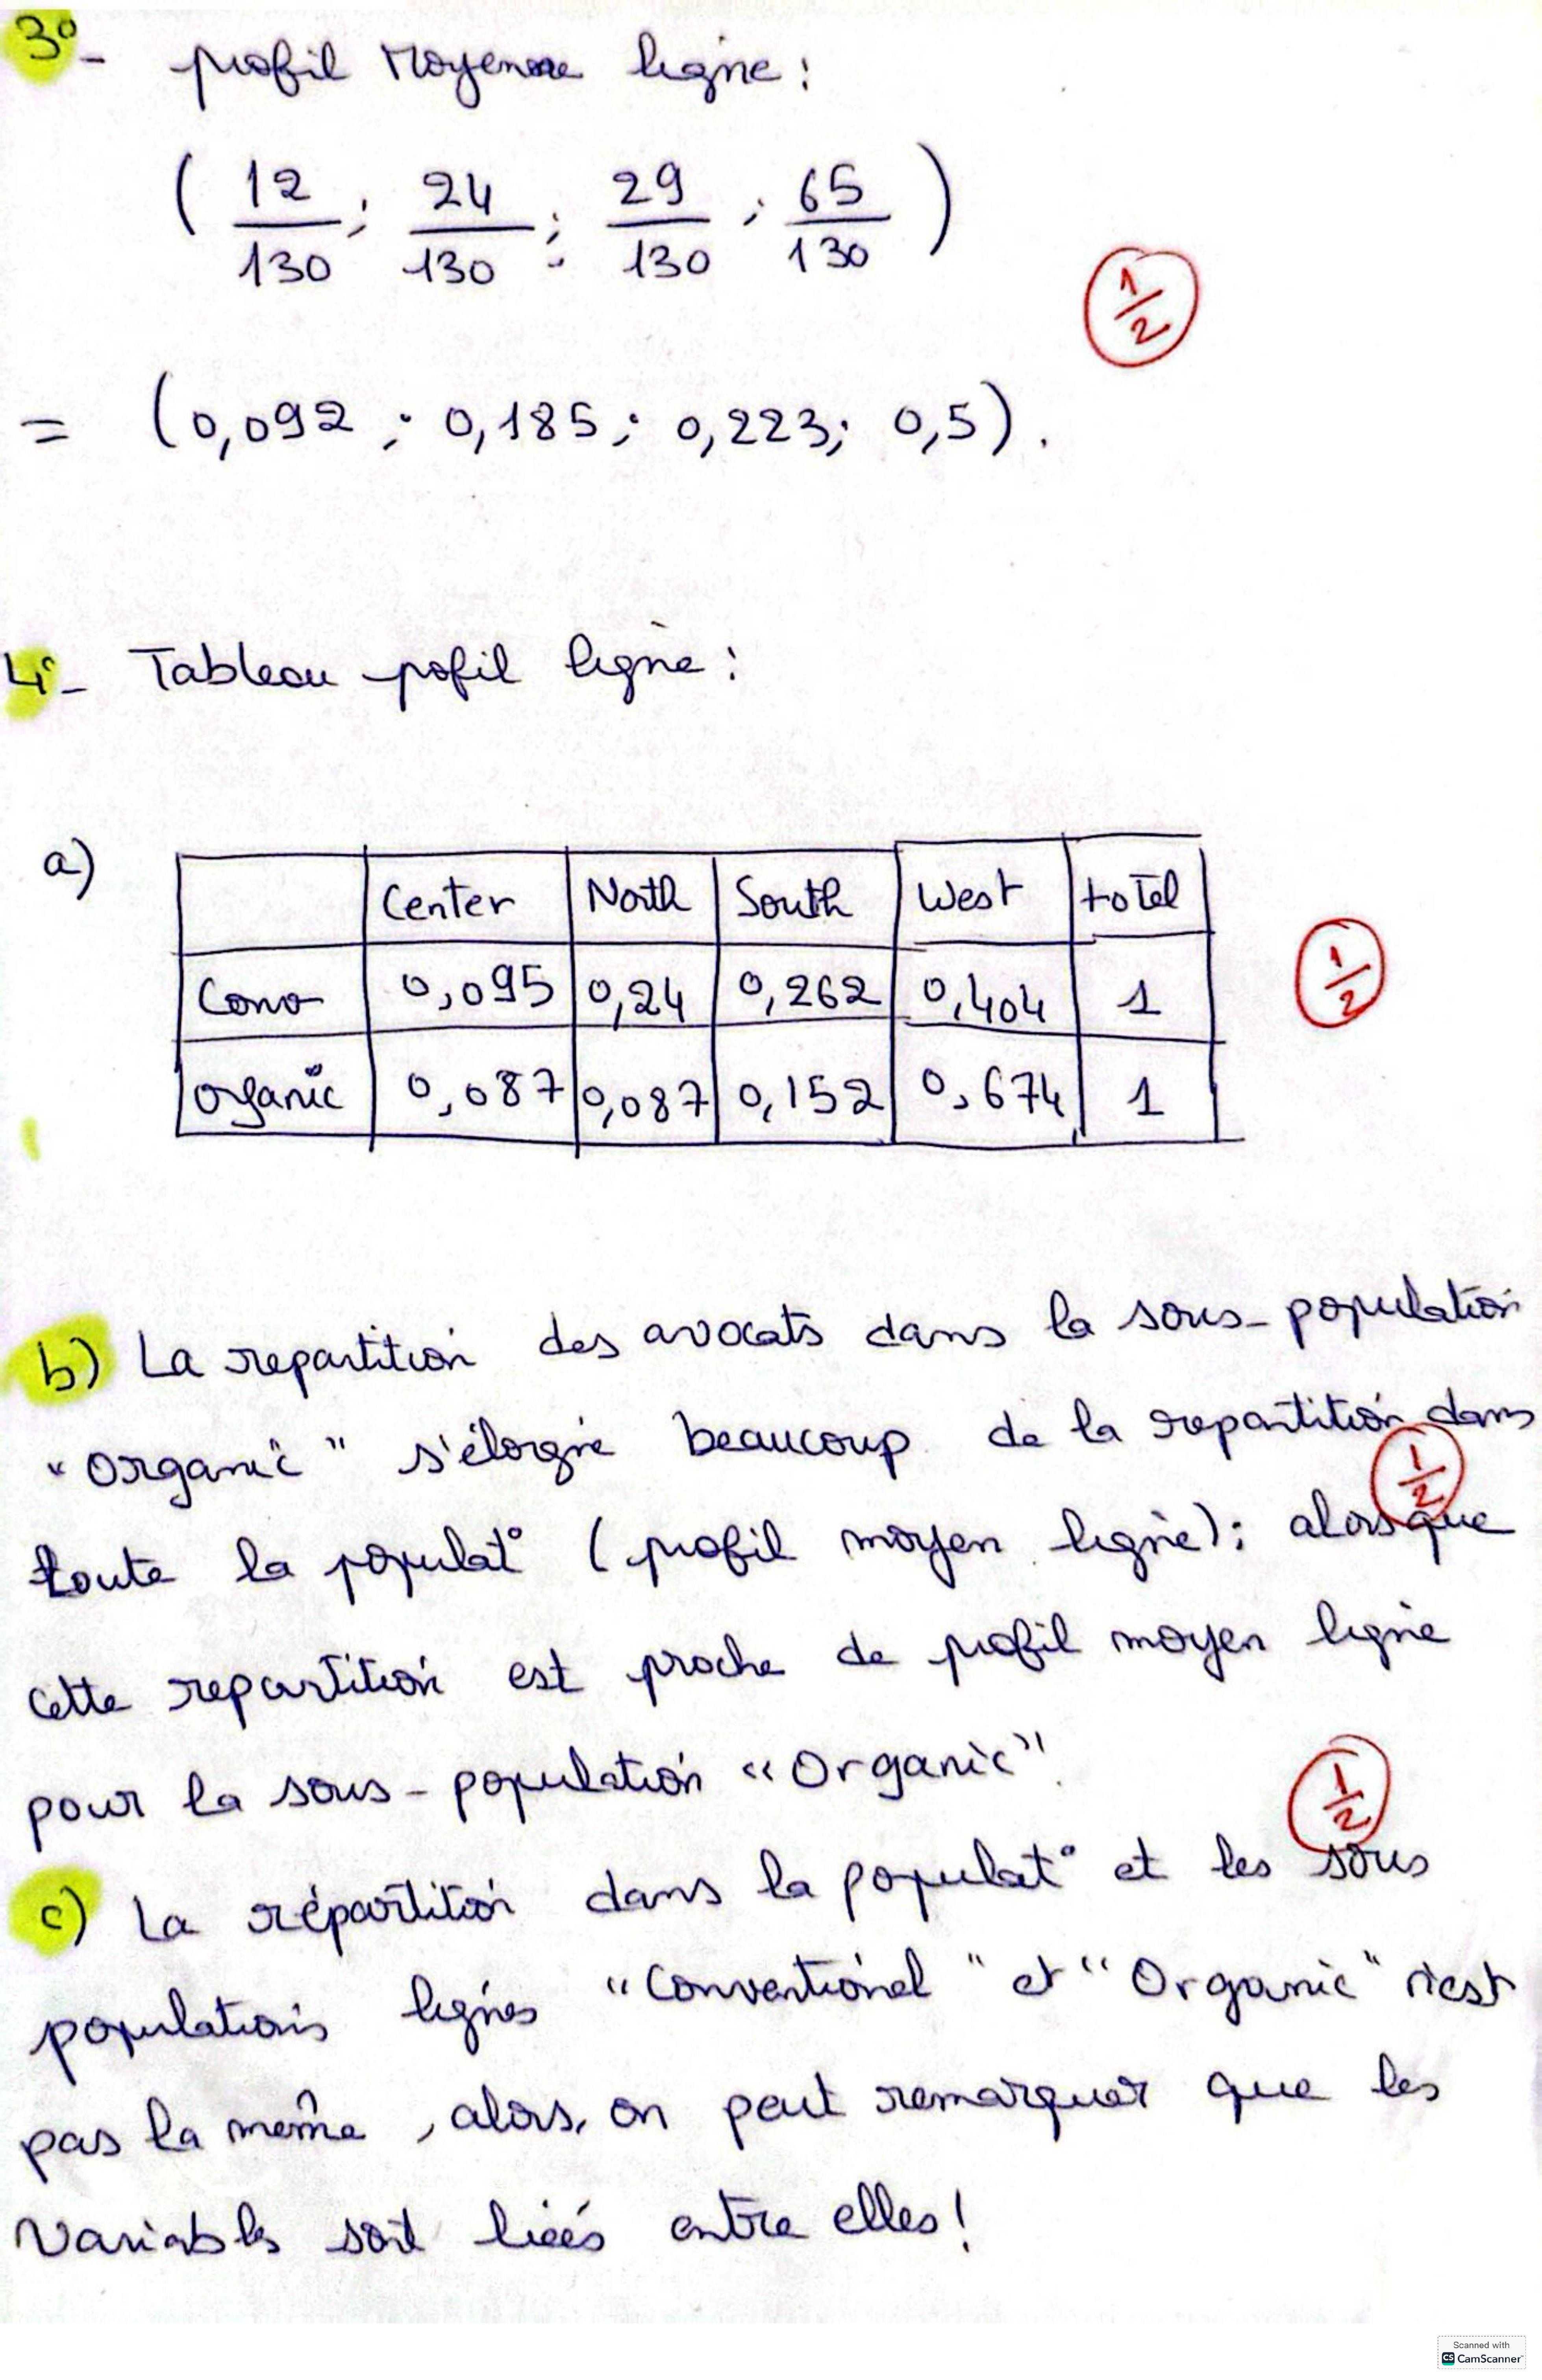 3°- profil Moyenne ligne :
( 12/130 ; 24/130 ; 29/130 ; 65/130 )
1/2
= (0,092 ; 0,185 ; 0,223 ; 0,5) .
4°- Tableau pofil ligne :
a)
Center North South West total
Conv 0,095 0,24 0,262 0,404 1
1/2
organic 0,087 0,087 0,152 0,674 1
b) La repartition des avocats dans la sous-population
"Organic" s'éloigne beaucoup de la repartition dans
1/2
toute la populat° (profil moyen ligne) ; alors que
cette repartition est proche de profil moyen ligne
pour la sous-population "Organic".
1/2
c) La répartition dans la populat° et les sous
populations lignes "Conventionel" et "Organic" n'est
pas la même , alors, on peut remarquer que les
Variables sont liées entre elles !
Scanned with
CS CamScanner